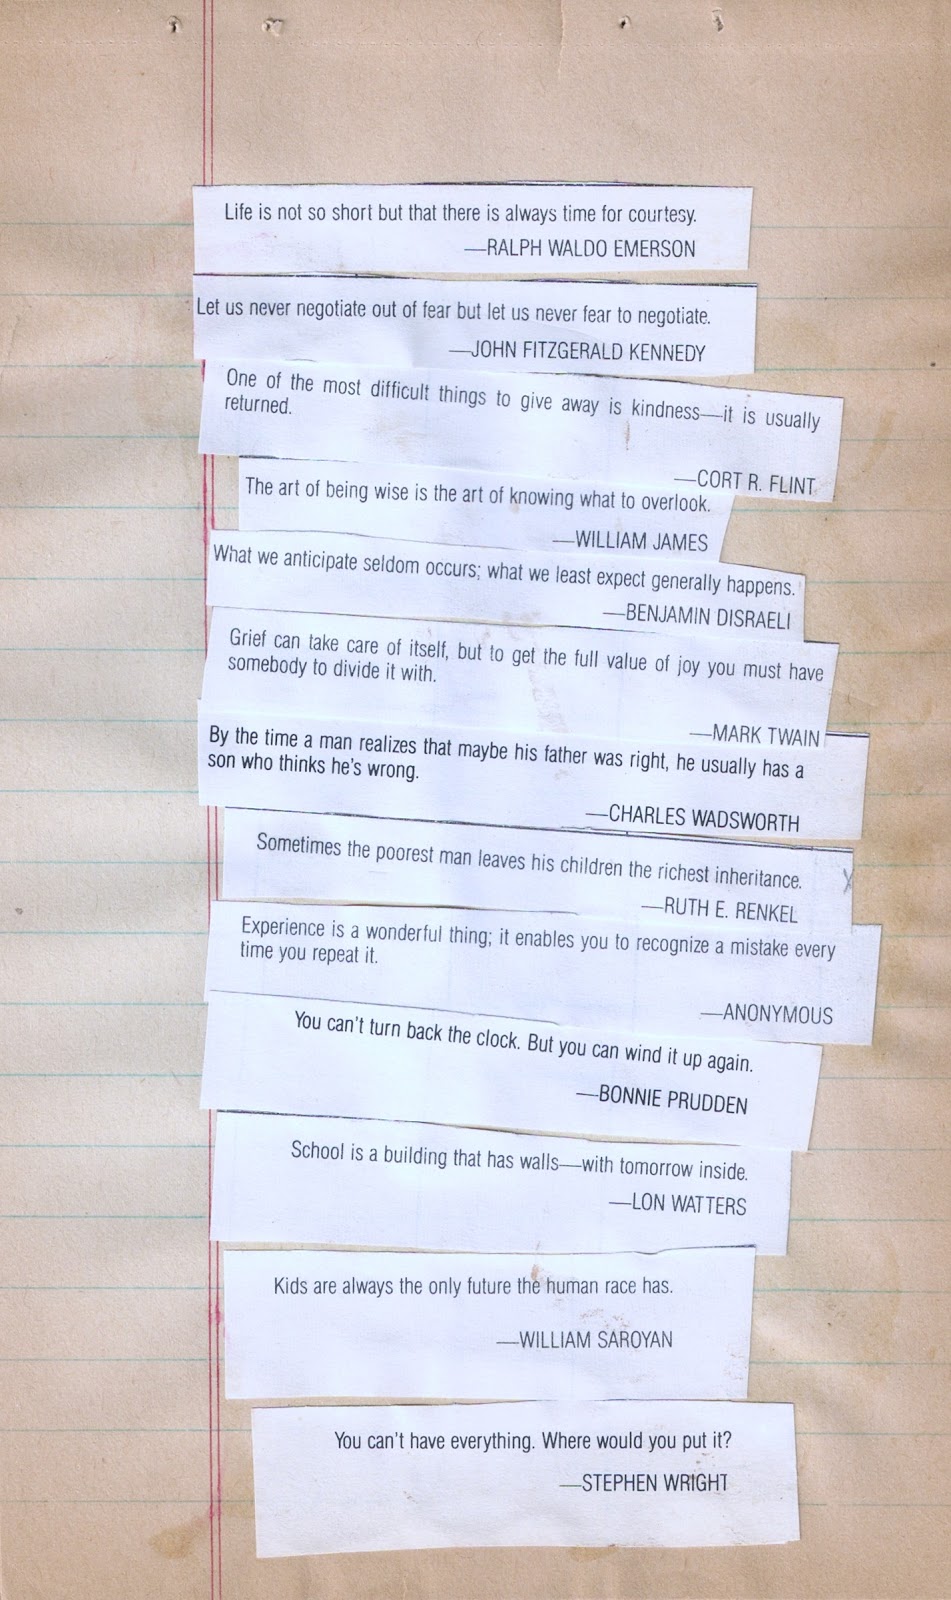 Life is not so short but that there is always time for courtesy.
—RALPH WALDO EMERSON
Let us never negotiate out of fear but let us never fear to negotiate.
—JOHN FITZGERALD KENNEDY
One of the most difficult things to give away is kindness—it is usually
returned.
—CORT R. FLINT
The art of being wise is the art of knowing what to overlook.
—WILLIAM JAMES
What we anticipate seldom occurs; what we least expect generally happens.
—BENJAMIN DISRAELI
Grief can take care of itself, but to get the full value of joy you must have
somebody to divide it with.
—MARK TWAIN
By the time a man realizes that maybe his father was right, he usually has a
son who thinks he's wrong.
—CHARLES WADSWORTH
Sometimes the poorest man leaves his children the richest inheritance.
—RUTH E. RENKEL
Experience is a wonderful thing; it enables you to recognize a mistake every
time you repeat it.
—ANONYMOUS
You can't turn back the clock. But you can wind it up again.
—BONNIE PRUDDEN
School is a building that has walls—with tomorrow inside.
—LON WATTERS
Kids are always the only future the human race has.
—WILLIAM SAROYAN
You can't have everything. Where would you put it?
—STEPHEN WRIGHT